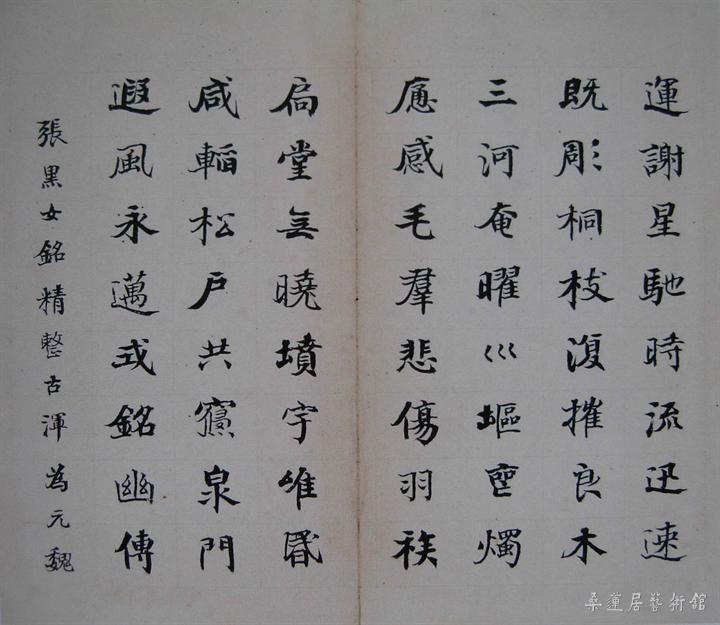 運謝星馳時流迅速
既彫桐枝復摧良木
三河奄曜巛塸燭
應感毛羣悲傷羽族
扃堂無曉墳宇唯昏
咸韜松戶共寢泉門
遐風永邁式銘幽傳
張黑女銘精整古渾為元魏
桑蓮居藝術館